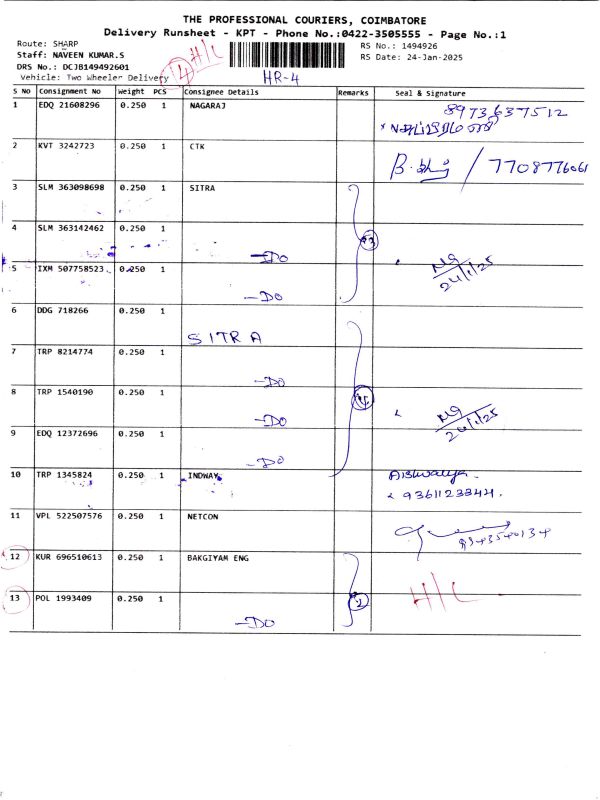 THE PROFESSIONAL COURIERS, COIMBATORE
Delivery Runsheet - KPT - Phone No.:0422-3505555 - Page No.:1
Route: SHARP
RS No.: 1494926
Staff: NAVEEN KUMAR.S
RS Date: 24-Jan-2025
DRS No.: DCJB149492601
Vehicle: Two Wheeler Delivery
4 H/L
HR-4
S No Consignment No Weight PCS Consignee Details Remarks Seal & Signature
1 EDQ 21608296 0.250 1 NAGARAJ 8973637512
2 KVT 3242723 0.250 1 CTK 7708776061
3 SLM 363098698 0.250 1 SITRA
4 SLM 363142462 0.250 1 -DO 3
5 IXM 507758523 0.250 1 -DO 24/1/25
6 DDG 718266 0.250 1 SITRA
7 TRP 8214774 0.250 1 -DO
8 TRP 1540190 0.250 1 -DO 24/1/25
9 EDQ 12372696 0.250 1 -DO
10 TRP 1345824 0.250 1 INDWAY Aishwarya
9361123344.
11 VPL 522507576 0.250 1 NETCON
12 KUR 696510613 0.250 1 BAKGIYAM ENG
13 POL 1993409 0.250 1 -DO 2 H/L